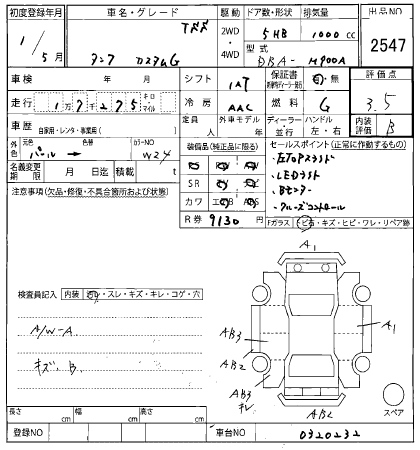 初度登録年月 車名・グレード 駆動 ドア数・形状 排気量 出品NO
1/5月 タンク カスタムG 2WD・4WD 5HB 1000cc 2547
型式 DBA- M900A
車検 年 月 シフト IAT 保証書 有・無 評価点
走行 1万7千275 キロ・マイル 冷房 AAC 燃料 G 3.5
車歴 自家用・レンタ・事業用( ) 定員 人 外車モデル 年 ディーラー・並行 ハンドル 左・右 内装評価 B
外色 元色 パール 色替 カラーNO W24
装備品(純正品に限る) セールスポイント(正常に動作するもの)
名義変更期限 月 日迄 積載 t
注意事項(欠品・修復・不具合箇所および状態)
SR
カワ エアB ABS
・LEDライト
・Bモニター
・クルーズコントロール
R券 9130 円
Fガラス トビ石・キズ・ヒビ・ワレ・リペア跡
A1
検査員記入 内装 ヨゴレ・スレ・キズ・キレ・コゲ・穴
A/W-A
キズ、B
AB3
A1
AB2
AB3
キレ
AB2
スペア
長さ cm 幅 cm 高さ cm
登録NO 車台NO 0320232